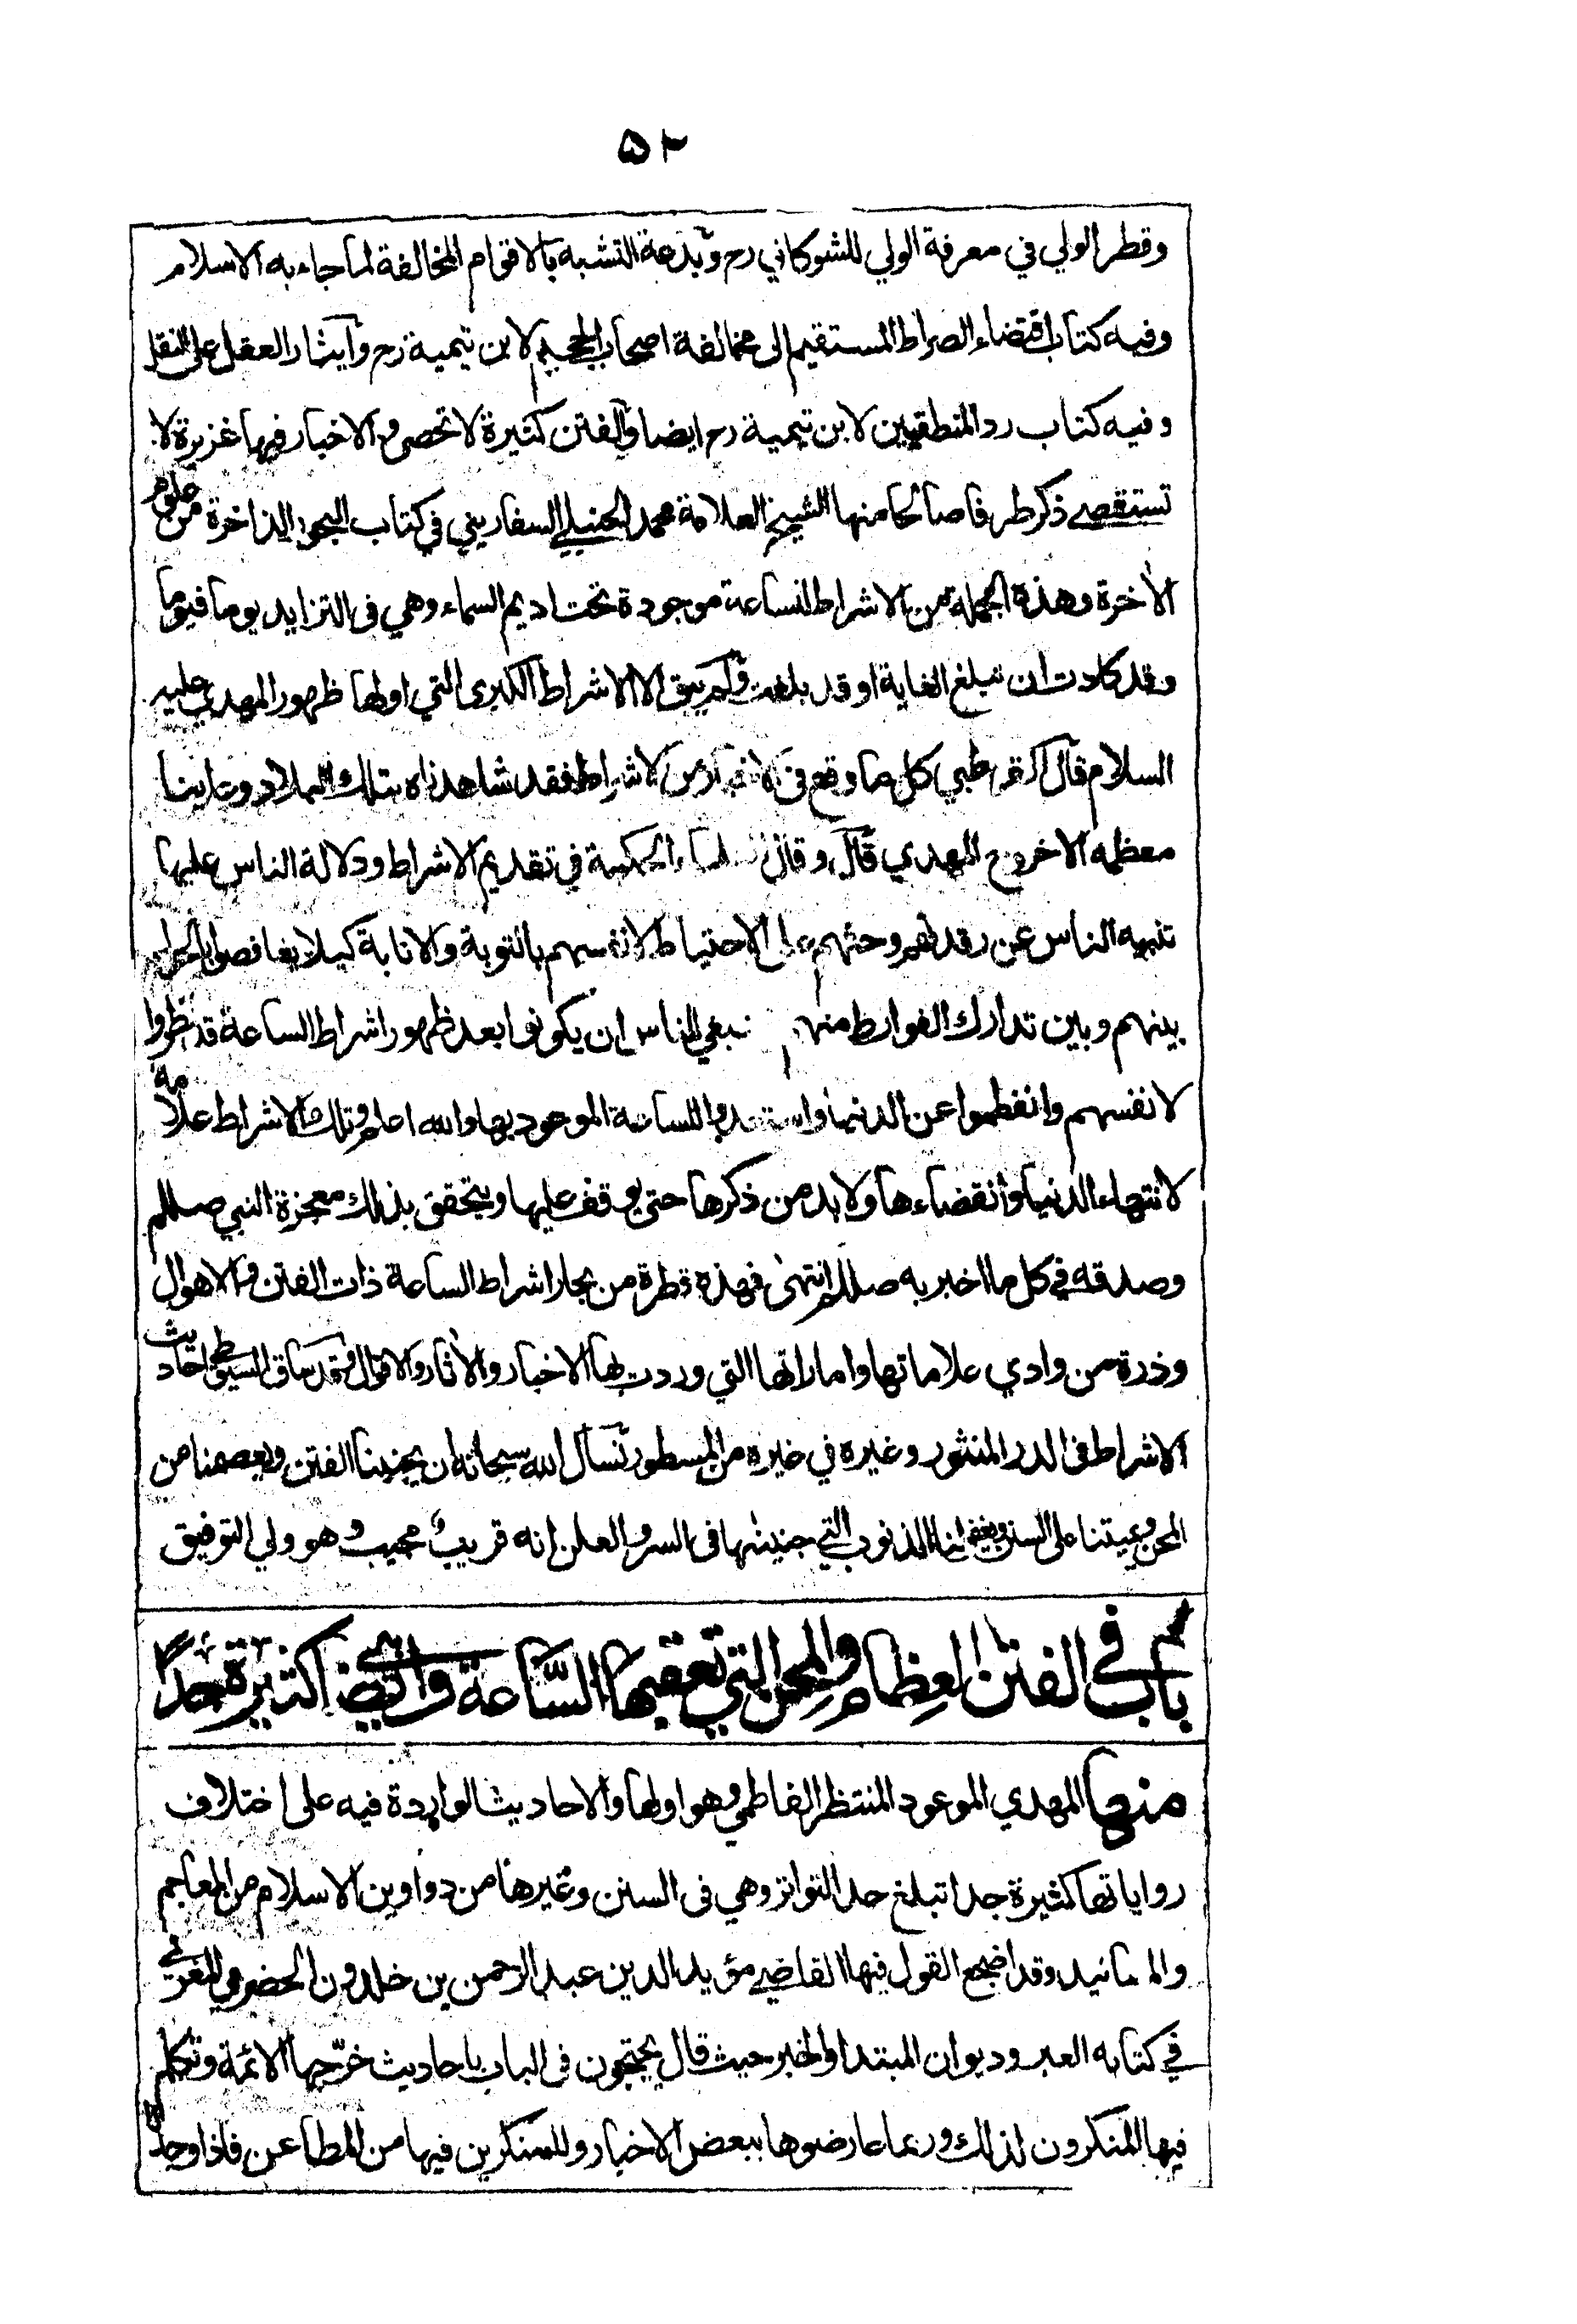 ٥٢
وقطر الولي في معرفة الولي للشوكاني رح وبدعة التشبه بالاقوام المخالفة لما جاء به الاسلام
وفيه كتاب اقتضاء الصراط المستقيم الى مخالفة اصحاب الجحيم لابن تيمية رح وايثار العقل على النقل
وفيه كتاب رد المنطقيين لابن تيمية رح ايضا والفتن كثيرة لا تحصى والاخبار فيها غزيرة لا
تستقصى ذكر طرفا صالحا منها الشيخ العلامة محمد الحنبلي السفاريني في كتاب البحور الزاخرة من علوم
الآخرة وهذه الجملة من الاشراط للساعة موجودة تحت اديم السماء وهي فى التزايد يوما فيوما
وقد كادت ان تبلغ الغاية او قد بلغت ولم يبق الا الاشراط الكبرى التي اولها ظهور المهدي عليه
السلام قال القرطبي كل ما وقع في من الاشراط فقد شاهدناه بتلك البلاد وعاينا
معظمه الا خروج المهدي قال وقال الحكمة في تقديم الاشراط ودلالة الناس عليها
تنبيه الناس عن رقدتهم وحثهم على الاحتياط لانفسهم بالتوبة والانابة كيلا يغافصوا بالحول
بينهم وبين تدارك الفوارط منهم نبغي للناس ان يكونوا بعد ظهور اشراط الساعة قد نظروا
لانفسهم وانفطموا عن الدنيا واستعدوا للساعة الموعود بها والله اعلم وتلك الاشراط علامة
لانتهاء الدنيا وانقضاءها ولا بد من ذكرها حتى يوقف عليها ويتحقق بذلك معجزة النبي صللم
وصدقه في كل ما اخبر به صللم انتهى فهذه قطرة من بحار اشراط الساعة ذات الفتن والاهوال
وذرة من وادي علاماتها واماراتها التي وردت بها الاخبار والآثار والاقوال وقد ساق السيوطي احاديث
الاشراط فى الدر المنثور وغيره في غيره من المسطور نسأل الله سبحانه ان يجنبنا الفتن ويعصمنا من
المحن ويميتنا على السنن ويغفر لنا الذنوب التي جنيناها فى السر والعلن انه قريب مجيب وهو ولي التوفيق
باب في الفتن العظام والمحن التي تعقبها الساعة وهي ايضا كثيرة جدا
منها المهدي الموعود المنتظر الفاطمي وهو اولها والاحاديث الواردة فيه على اختلاف
رواياتها كثيرة جدا تبلغ حد التواتر وهي فى السنن وغيرها من دواوين الاسلام من المعاجم
والمسانيد وقد اضجع القول فيها القاضي مؤيد الدين عبد الرحمن بن خلدون الحضرمي المغربي
في كتابه العبر وديوان المبتدا والخبر حيث قال يحتجون فى الباب باحاديث خرّجها الائمة وتكلم
فيها المنكرون لذلك وربما عارضوها ببعض الاخبار وللمنكرين فيها من المطاعن فاذا وجدنا